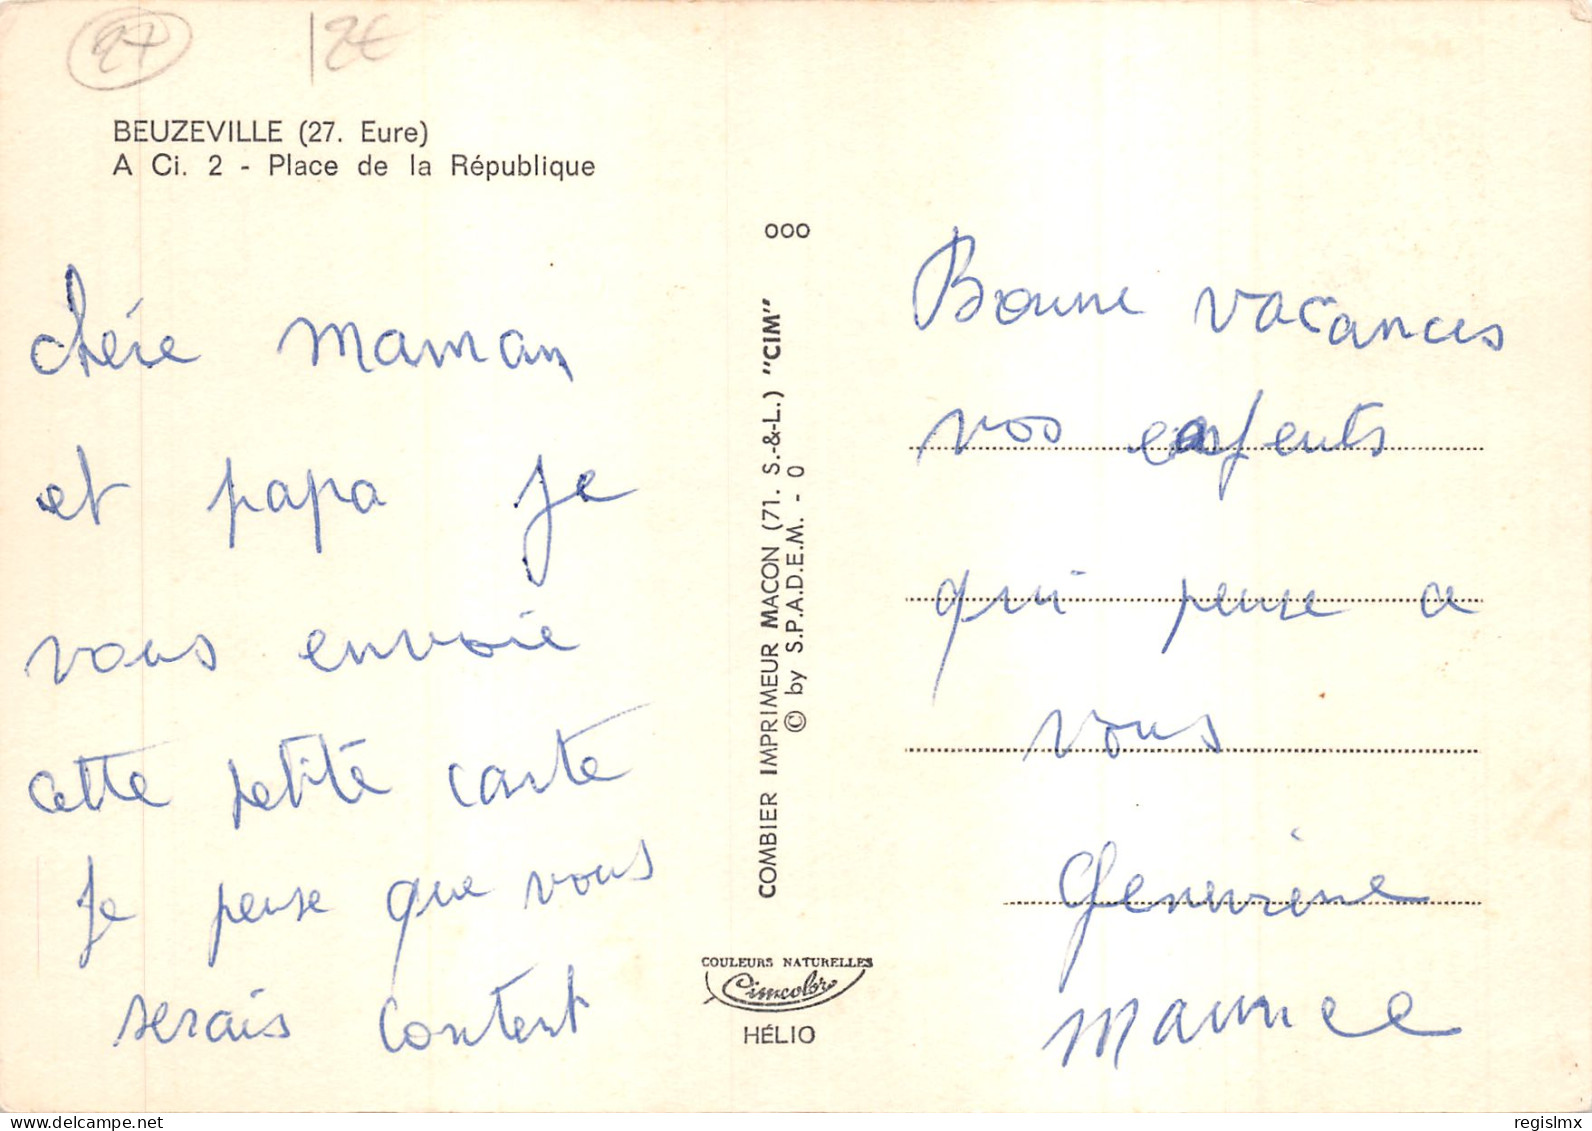 27
2€
BEUZEVILLE (27. Eure)
A Ci. 2 - Place de la République
chére maman
et papa je
vous envoie
cette petite carte
je pense que vous
serais content
000
COMBIER IMPRIMEUR MACON (71. S.-&-L.) "CIM"
© by S.P.A.D.E.M. - 0
COULEURS NATURELLES
Cimcolor
HÉLIO
Bonne vacances
vos enfents
qui pense a
vous
Genevieve
maurice
delcampe.net
regislmx